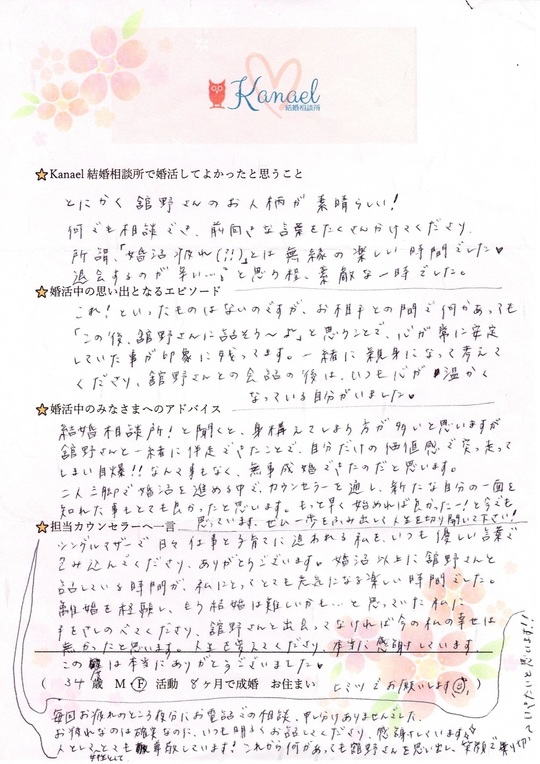 Kanael
結婚相談所
★Kanael 結婚相談所で婚活してよかったと思うこと
とにかく 舘野さんのお人柄が 素晴らしい!
何でも相談でき、前向きな言葉をたくさんかけてくださり、
所謂、「婚活疲れ(!!)」とは無縁の楽しい時間でした♥
退会するのが辛い…。と思う程、素敵な一時でした。
★婚活中の思い出となるエピソード
これ!といったものはないのですが、お相手との間で何かあっても
「この後、舘野さんに話そう〜♪」と思うことで、心が常に安定
していた事が印象に残ってます。一緒に親身になって考えて
くださり、舘野さんとの会話の後は、いつも心が 温かく
なっている自分がいました♥
★婚活中のみなさまへのアドバイス
結婚相談所!と聞くと、身構えてしまう方が多いと思いますが
舘野さんと一緒に伴走できたことで、自分だけの価値感で突っ走って
しまい自爆!!なんて事もなく、無事成婚できたのだと思います。
二人三脚で婚活を進める中で、カウンセラーを通し、新たな自分の一面を
知れた事もとても良かったと思います。もっと早く始めれば良かったー!と今でも
思っています。ぜひ一歩をふみ出して人生を切り開いて下さい!
★担当カウンセラーへ一言
シングルマザーで日々仕事と子育てに追われる私を、いつも優しい言葉で
包み込んでくださり、ありがとうございます。婚活以上に舘野さんと
話している時間が、私にとってとても元気になる楽しい時間でした。
離婚を経験し、もう結婚は難しいかも…と思っていた私に
手をさしのべてくださり、舘野さんと出会ってなければ今の私の幸せは
無かったと思います。人生を変えてくださり、本当に感謝しています。
この度は本当にありがとうございました♥
( 34 歳 M・F 活動 8ヶ月で成婚 お住まい ヒミツでお願いします )
毎回お疲れのところ夜分にお電話での相談、申し訳ありませんでした。
お疲れなのは確実なのに、いつも明るくお話してくださり、感謝しています
人としても 女性としても 尊敬しています!これから何があっても舘野さんを思い出し、笑顔で乗り切って
いきたいと思います!!